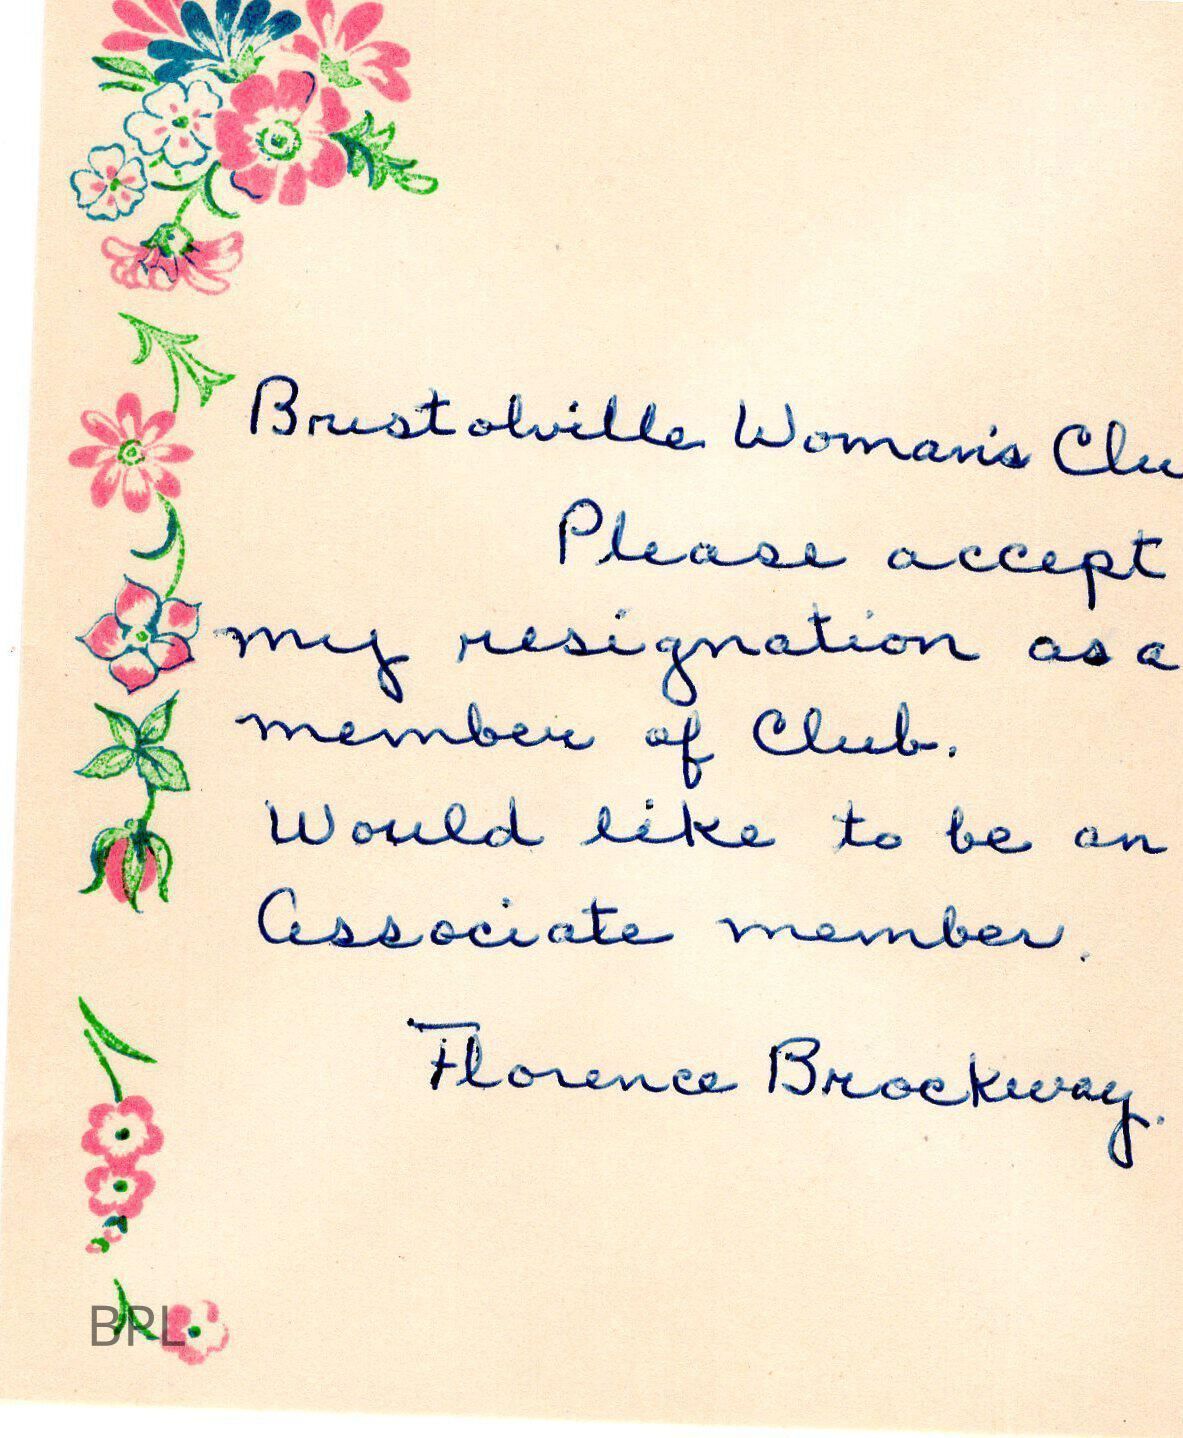 Bristolville Woman's Clu
Please accept
my resignation as a
member of Club.
Would like to be an
Associate member.
Florence Brockway.
BPL